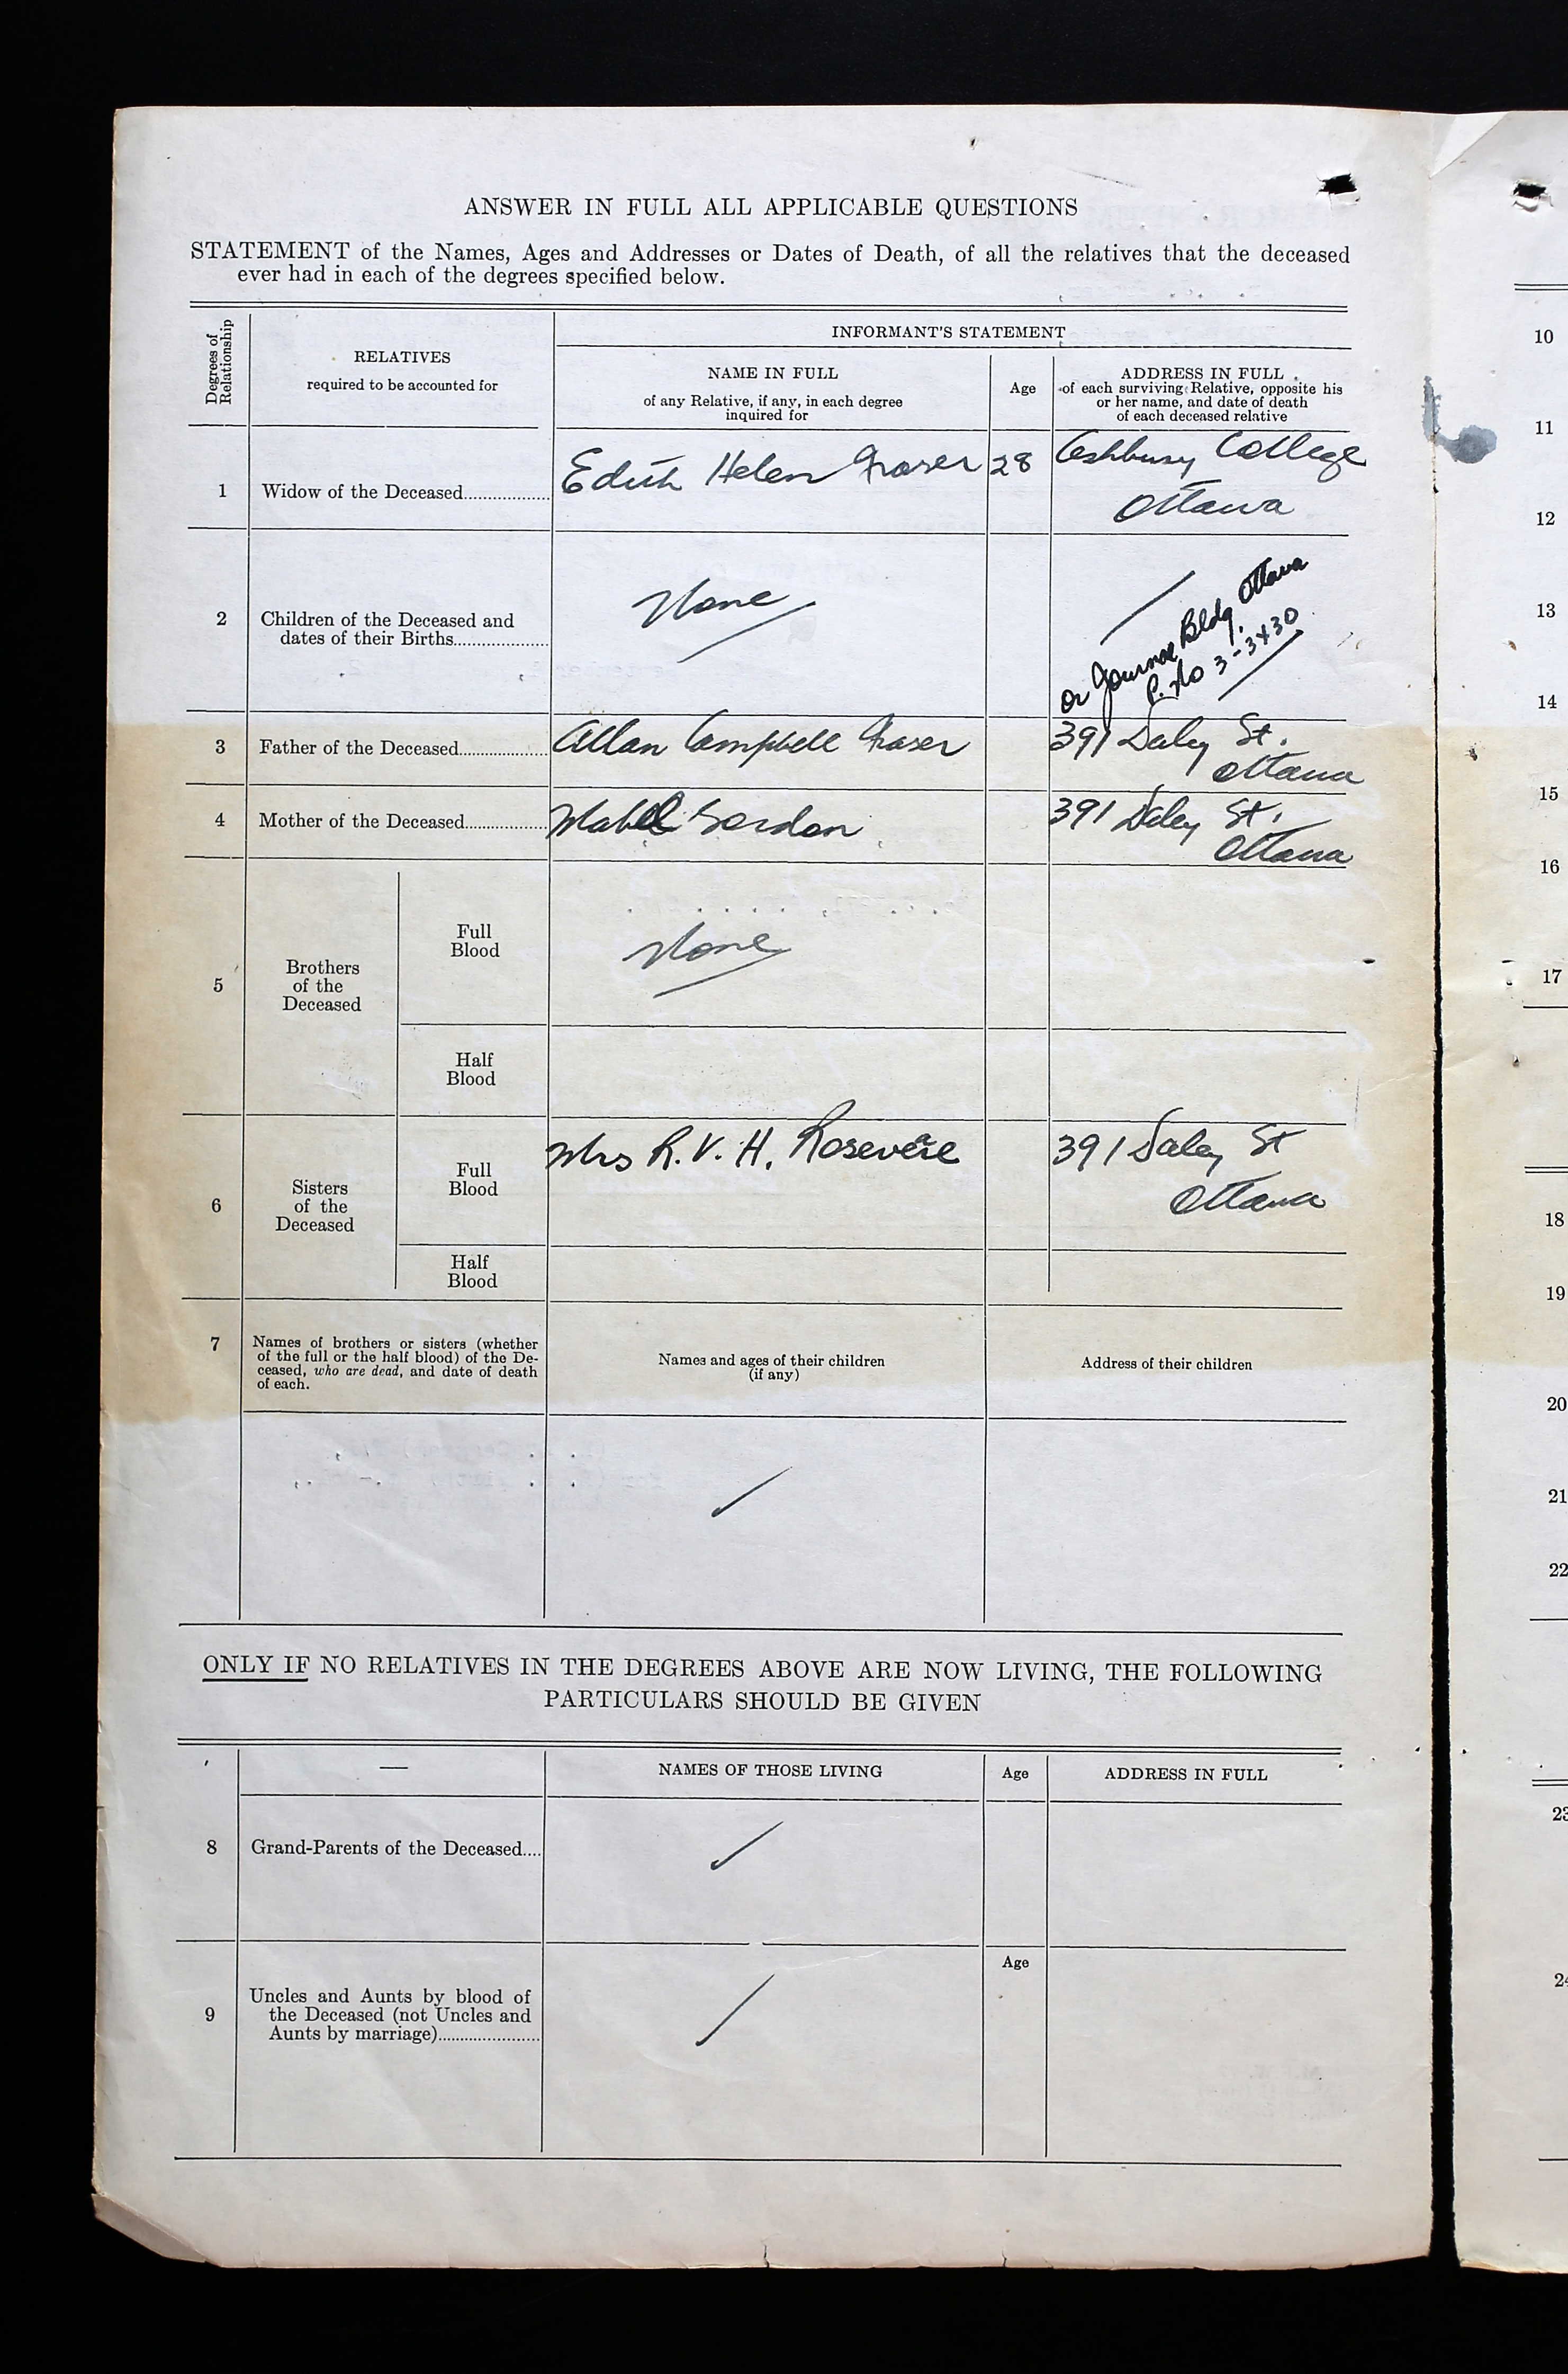 ANSWER IN FULL ALL APPLICABLE QUESTIONS
STATEMENT of the Names, Ages and Addresses or Dates of Death, of all the relatives that the deceased
ever had in each of the degrees specified below.
Degrees of
Relationship
RELATIVES
required to be accounted for
INFORMANT'S STATEMENT
NAME IN FULL
of any Relative, if any, in each degree
inquired for
Age
ADDRESS IN FULL
of each surviving Relative, opposite his
or her name, and date of death
of each deceased relative
1 Widow of the Deceased.................. Edith Helen Fraser 28 Ashbury College
Ottawa
2 Children of the Deceased and
dates of their Births.................... None
or Journal Bldg. Ottawa
P. No 3-3430
3 Father of the Deceased.................. Allan Campbell Fraser 391 Daly St.
Ottawa
4 Mother of the Deceased................. Mabel Gordon 391 Daly St.
Ottawa
5 Brothers
of the
Deceased
Full
Blood
None
Half
Blood
6 Sisters
of the
Deceased
Full
Blood
Mrs R. V. H. Rosevere 391 Daly St
Ottawa
Half
Blood
7 Names of brothers or sisters (whether
of the full or the half blood) of the De-
ceased, who are dead, and date of death
of each.
Names and ages of their children
(if any)
Address of their children
ONLY IF NO RELATIVES IN THE DEGREES ABOVE ARE NOW LIVING, THE FOLLOWING
PARTICULARS SHOULD BE GIVEN
— NAMES OF THOSE LIVING Age ADDRESS IN FULL
8 Grand-Parents of the Deceased....
Age
9 Uncles and Aunts by blood of
the Deceased (not Uncles and
Aunts by marriage).......................
10
11
12
13
14
15
16
17
18
19
20
21
22
23
24